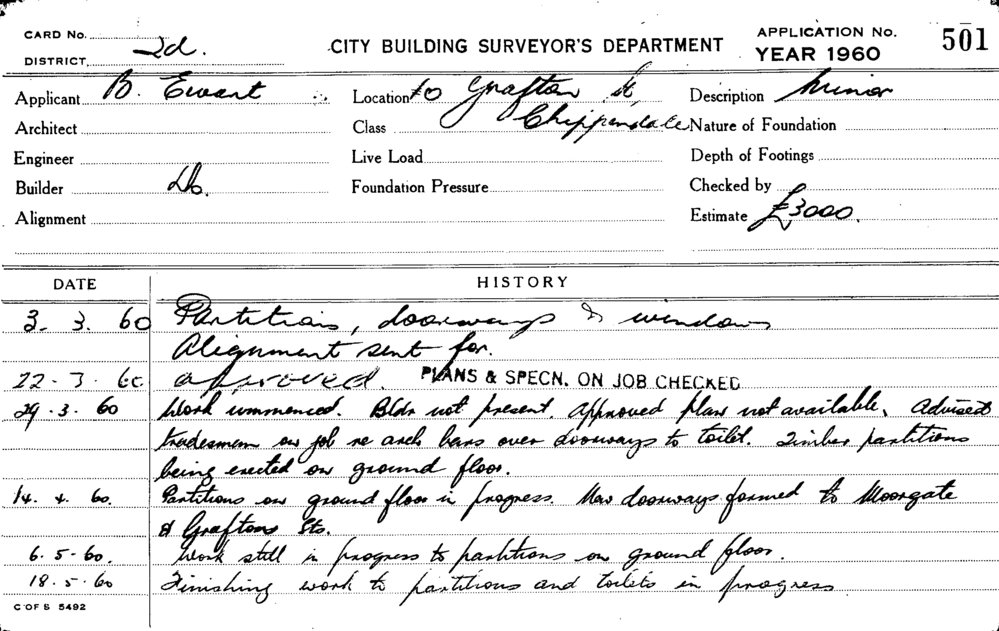 CARD No.
DISTRICT 2d.
CITY BUILDING SURVEYOR'S DEPARTMENT
APPLICATION No.
YEAR 1960
501
Applicant B. Ewart
Location 40 Grafton St,
Description Minor
Architect
Class Chippendale
Nature of Foundation
Engineer
Live Load
Depth of Footings
Builder Do.
Foundation Pressure
Checked by
Alignment
Estimate £3000.
DATE HISTORY
3. 3. 60 Partitions, doorways & windows
Alignment sent for.
22. 3. 60 approved. PLANS & SPECN. ON JOB CHECKED
29. 3. 60 Work commenced. Bldr not present. Approved plan not available. Advised
tradesmen on job re arch bars over doorways to toilet. Timber partitions
being erected on ground floor.
14. 4. 60. Partitions on ground floor in progress. New doorways formed to Moorgate
& Grafton Sts.
6. 5. 60. Work still in progress to partitions on ground floor.
18. 5. 60 Finishing work to partitions and toilets in progress
C OF S 5492